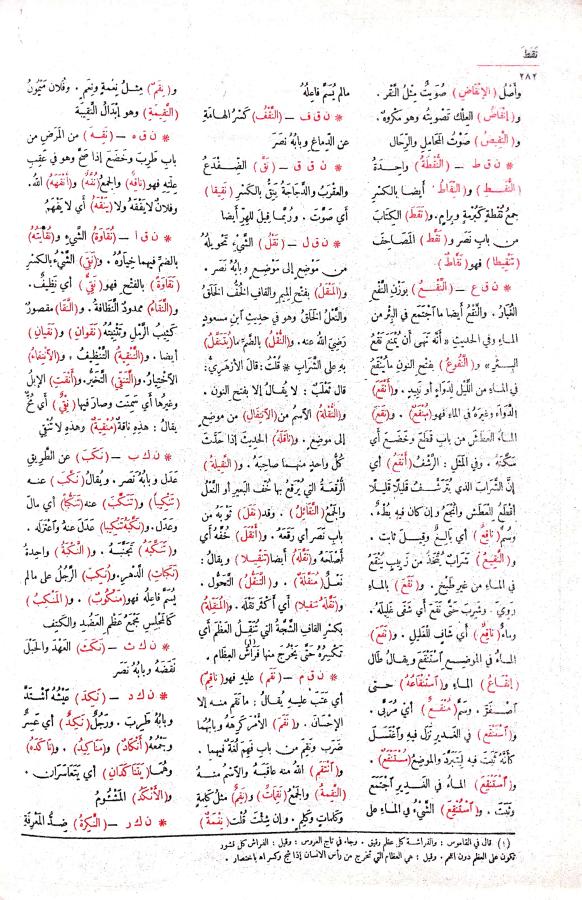 نقط
٢٨٢
وأصل (الإنقاض) صويت مثل النقر.
و(إنقاض) العلك تصويته وهو مكروه.
و(النقيض) صوت المحامل والرحال
* ن ق ط – (النقطة) واحدة
(النقط) و(النقاط) أيضا بالكسر
جمع نقطة كبرمة وبرام. و(نقط) الكتاب
من باب نصر و(نقط) المصاحف
(تنقيطا) فهو (نقاط)
* ن ق ع – (النقع) بوزن النفع
الغبار. والنقع أيضا ما اجتمع في البئر من
الماء وفي الحديث «أنه نهى أن يمنع نقع
البئر» و(النقوع) بفتح النون ما ينقع
في الماء من الليل لدواء أو نبيذ. و(أنقع)
الدواء وغيره في الماء فهو (منقع). و(نقع)
الماء العطش من باب قطع وخضع أي
سكنه. وفي المثل: الرشف (أنقع) أي
إن الشراب الذي يترشف قليلا قليلا
أقطع للعطش وأنجع وإن كان فيه بطء.
وسم (ناقع) أي بالغ وقيل ثابت.
و(النقيع) شراب يتخذ من زبيب ينقع
في الماء من غير طبخ. و(نقع) بالماء
روي. وشرب حتى نقع أي شفى غليله.
وماء (ناقع) أي شاف للغليل. و(نقع)
الماء في الموضع استنقع ويقال طال
(إنقاع) الماء و(استنقاعه) حتى
اصفر. وسم (منقع) أي مربى.
و(استنقع) في الغدير نزل فيه واغتسل
كأنه ثبت فيه ليتبرد والموضع (مستنقع).
و(استنقع) الماء في الغدير اجتمع
وثبت. و(استنقع) الشيء في الماء على
مالم يسم فاعله
* ن ق ف – (النقف) كسر الهامة
عن الدماغ وبابه نصر
* ن ق ق – (نق) الضفدع
والعقرب والدجاجة ينق بالكسر (نقيقا)
أي صوت. وربما قيل للهر أيضا
* ن ق ل – (نقل) الشيء تحويله
من موضع إلى موضع وبابه نصر.
و(المنقل) بفتح الميم والقاف الخف الخلق
والنعل الخلق وهو في حديث ابن مسعود
رضي الله عنه. و(النقل) بالضم ما (يتنقل)
به على الشراب * قلت: قال الأزهري:
قال ثعلب: لا يقال إلا بفتح النون.
و(النقلة) الاسم من (الانتقال) من موضع
إلى موضع. و(ناقله) الحديث إذا حدث
كل واحد منهما صاحبه. و(النقيلة)
الرقعة التي يرقع بها خف البعير أو النعل
والجمع (النقائل). وقد (نقل) ثوبه من
باب نصر أي رقعه. و(أنقل) خفه أي
أصلحه و(نقله) أيضا (تنقيلا) ويقال:
نعل (منقلة). و(التنقل) التحول.
و(نقله تنقيلا) أي أكثر نقله. و(المنقلة)
بكسر القاف الشجة التي تنقل العظم أي
تكسره حتى يخرج منها فراش(١) العظام.
* ن ق م – (نقم) عليه فهو (ناقم)
أي عتب عليه يقال: ما نقم منه إلا
الإحسان. و(نقم) الأمر كرهه وبابهما
ضرب ونقم من باب فهم لغة فيهما.
و(انتقم) الله منه عاقبه والاسم منه
(النقمة) والجمع (نقمات) و(نقم) مثل كلمة
وكلمات وكلم. وإن شئت قلت (نقمة)
و(نقم) مثل نعمة ونعم. وفلان ميمون
(النقيمة) وهو إبدال النقيبة
* ن ق ه – (نقه) من المرض من
باب طرب وخضع إذا صح وهو في عقب
علته فهو (ناقه) والجمع (نقه) و(أنقهه) الله.
وفلان لا يفقه ولا (ينقه) أي لا يفهم
* ن ق ا – (نقاوة) الشيء و(نقايته)
بالضم فيهما خياره. و(نقي) الشيء بالكسر
(نقاوة) بالفتح فهو (نقي) أي نظيف.
و(النقاء) ممدود النظافة. و(النقا) مقصور
كثيب الرمل وتثنيته (نقوان) و(نقيان)
أيضا. و(التنقية) التنظيف. و(الانتقاء)
الاختيار. و(التنقي) التخير. و(أنقت) الإبل
وغيرها أي سمنت وصار فيها (نقي) أي مخ
يقال: هذه ناقة (منقية) وهذه لا تنقي
* ن ك ب – (نكب) عن الطريق
عدل وبابه نصر. ويقال (نكب) عنه
(تنكيبا) و(تنكب) عنه (تنكبا) أي مال
وعدل. و(نكبه تنكيبا) عدل عنه واعتزله.
و(تنكبه) تجنبه. و(النكبة) واحدة
(نكبات) الدهر. و(نكب) الرجل على مالم
يسم فاعله فهو (منكوب). و(المنكب)
كالمجلس مجمع عظم العضد والكتف
* ن ك ث – (نكث) العهد والحبل
نقضه وبابه نصر
* ن ك د – (نكد) عيشه اشتد
وبابه طرب. ورجل (نكد) أي عسر
وجمعه (أنكاد) و(مناكيد). و(ناكده)
وهما (يتناكدان) أي يتعاسران.
و(الأنكد) المشئوم
* ن ك ر – (النكرة) ضد المعرفة
(١) قال في القاموس: والفراشة كل عظم رقيق. وجاء في تاج العروس: وقيل: الفراش كل قشور
تكون على العظم دون اللحم. وقيل: هي العظام التي تخرج من رأس الانسان إذا شج وكسر اه باختصار.